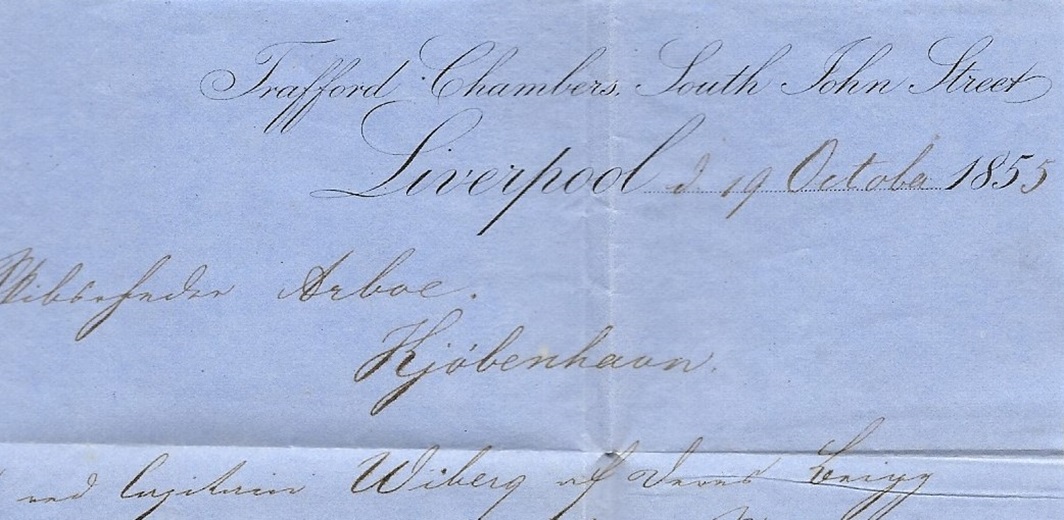 Trafford Chambers, South John Street
Liverpool d. 19 October 1855
Skibsrheder Arboe.
Kjöbenhavn.
ved Capitain Wiberg af Deres Brigg